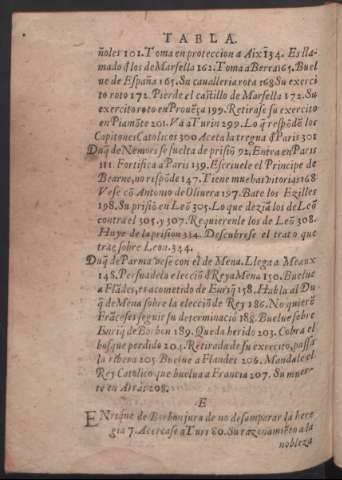 TABLA.
ñoles 101. Toma en proteccion a Aix 134. Es lla-
mado q̃ los de Marsella 162. Toma a Berra 165. Buel
ue de España 165. Su caualleria rota 168 Su exerci
to roto 172. Pierde el castillo de Marsella 172. Su
exercito roto en Prouẽça 199. Retirase su exercito
en Piamõte 201. Va a Turin 299. Lo q̃ respõdẽ los
Capitones Catolicos 300 Aceta la tregua d̃ Paris 301
Duq̃ de Nemors se suelta de prisiõ 92. Entra en Paris
111. Fortifica a Paris 139. Escriuele el Principe de
Bearne, no respõde 147. Tiene muchas vitorias 168
Vese cõ Antonio de Oliuera 197. Bate los Exilles
198. Su prisiõ en Leõ 305. Lo que deziã los de Leõ
contra el 305. y 307. Requierenle los de Leõ 308.
Huye de la prision 324. Descubrese el trato que
trae sobre Leon. 344.
Duq̃ de Parma vese con el de Mena. Llega a Meaux
148. Persuade la elecciõ d̃ Rey a Mena 150. Buelue
a Flãdes, es acometido de Euriq̃ 158. Habla al Du
q̃ de Mena sobre la elecciõ de Rey 186. No quierẽ
Frãceses seguir su determinaciõ 188. Buelue sobre
Euriq̃ de Borbon 189. Queda herido 203. Cobra el
bosque perdido 204. Retirada de su exercito, passa
la ribera 205 Buelue a Flandes 206. Mandale el
Rey Catolico que buelua a Francia 207. Su muer-
te en Arras 208.
E
ENrique de Borbon jura de no desamparar la here
gia 7. Acercase a Turs 80. Su razonamiẽto a la
nobleza